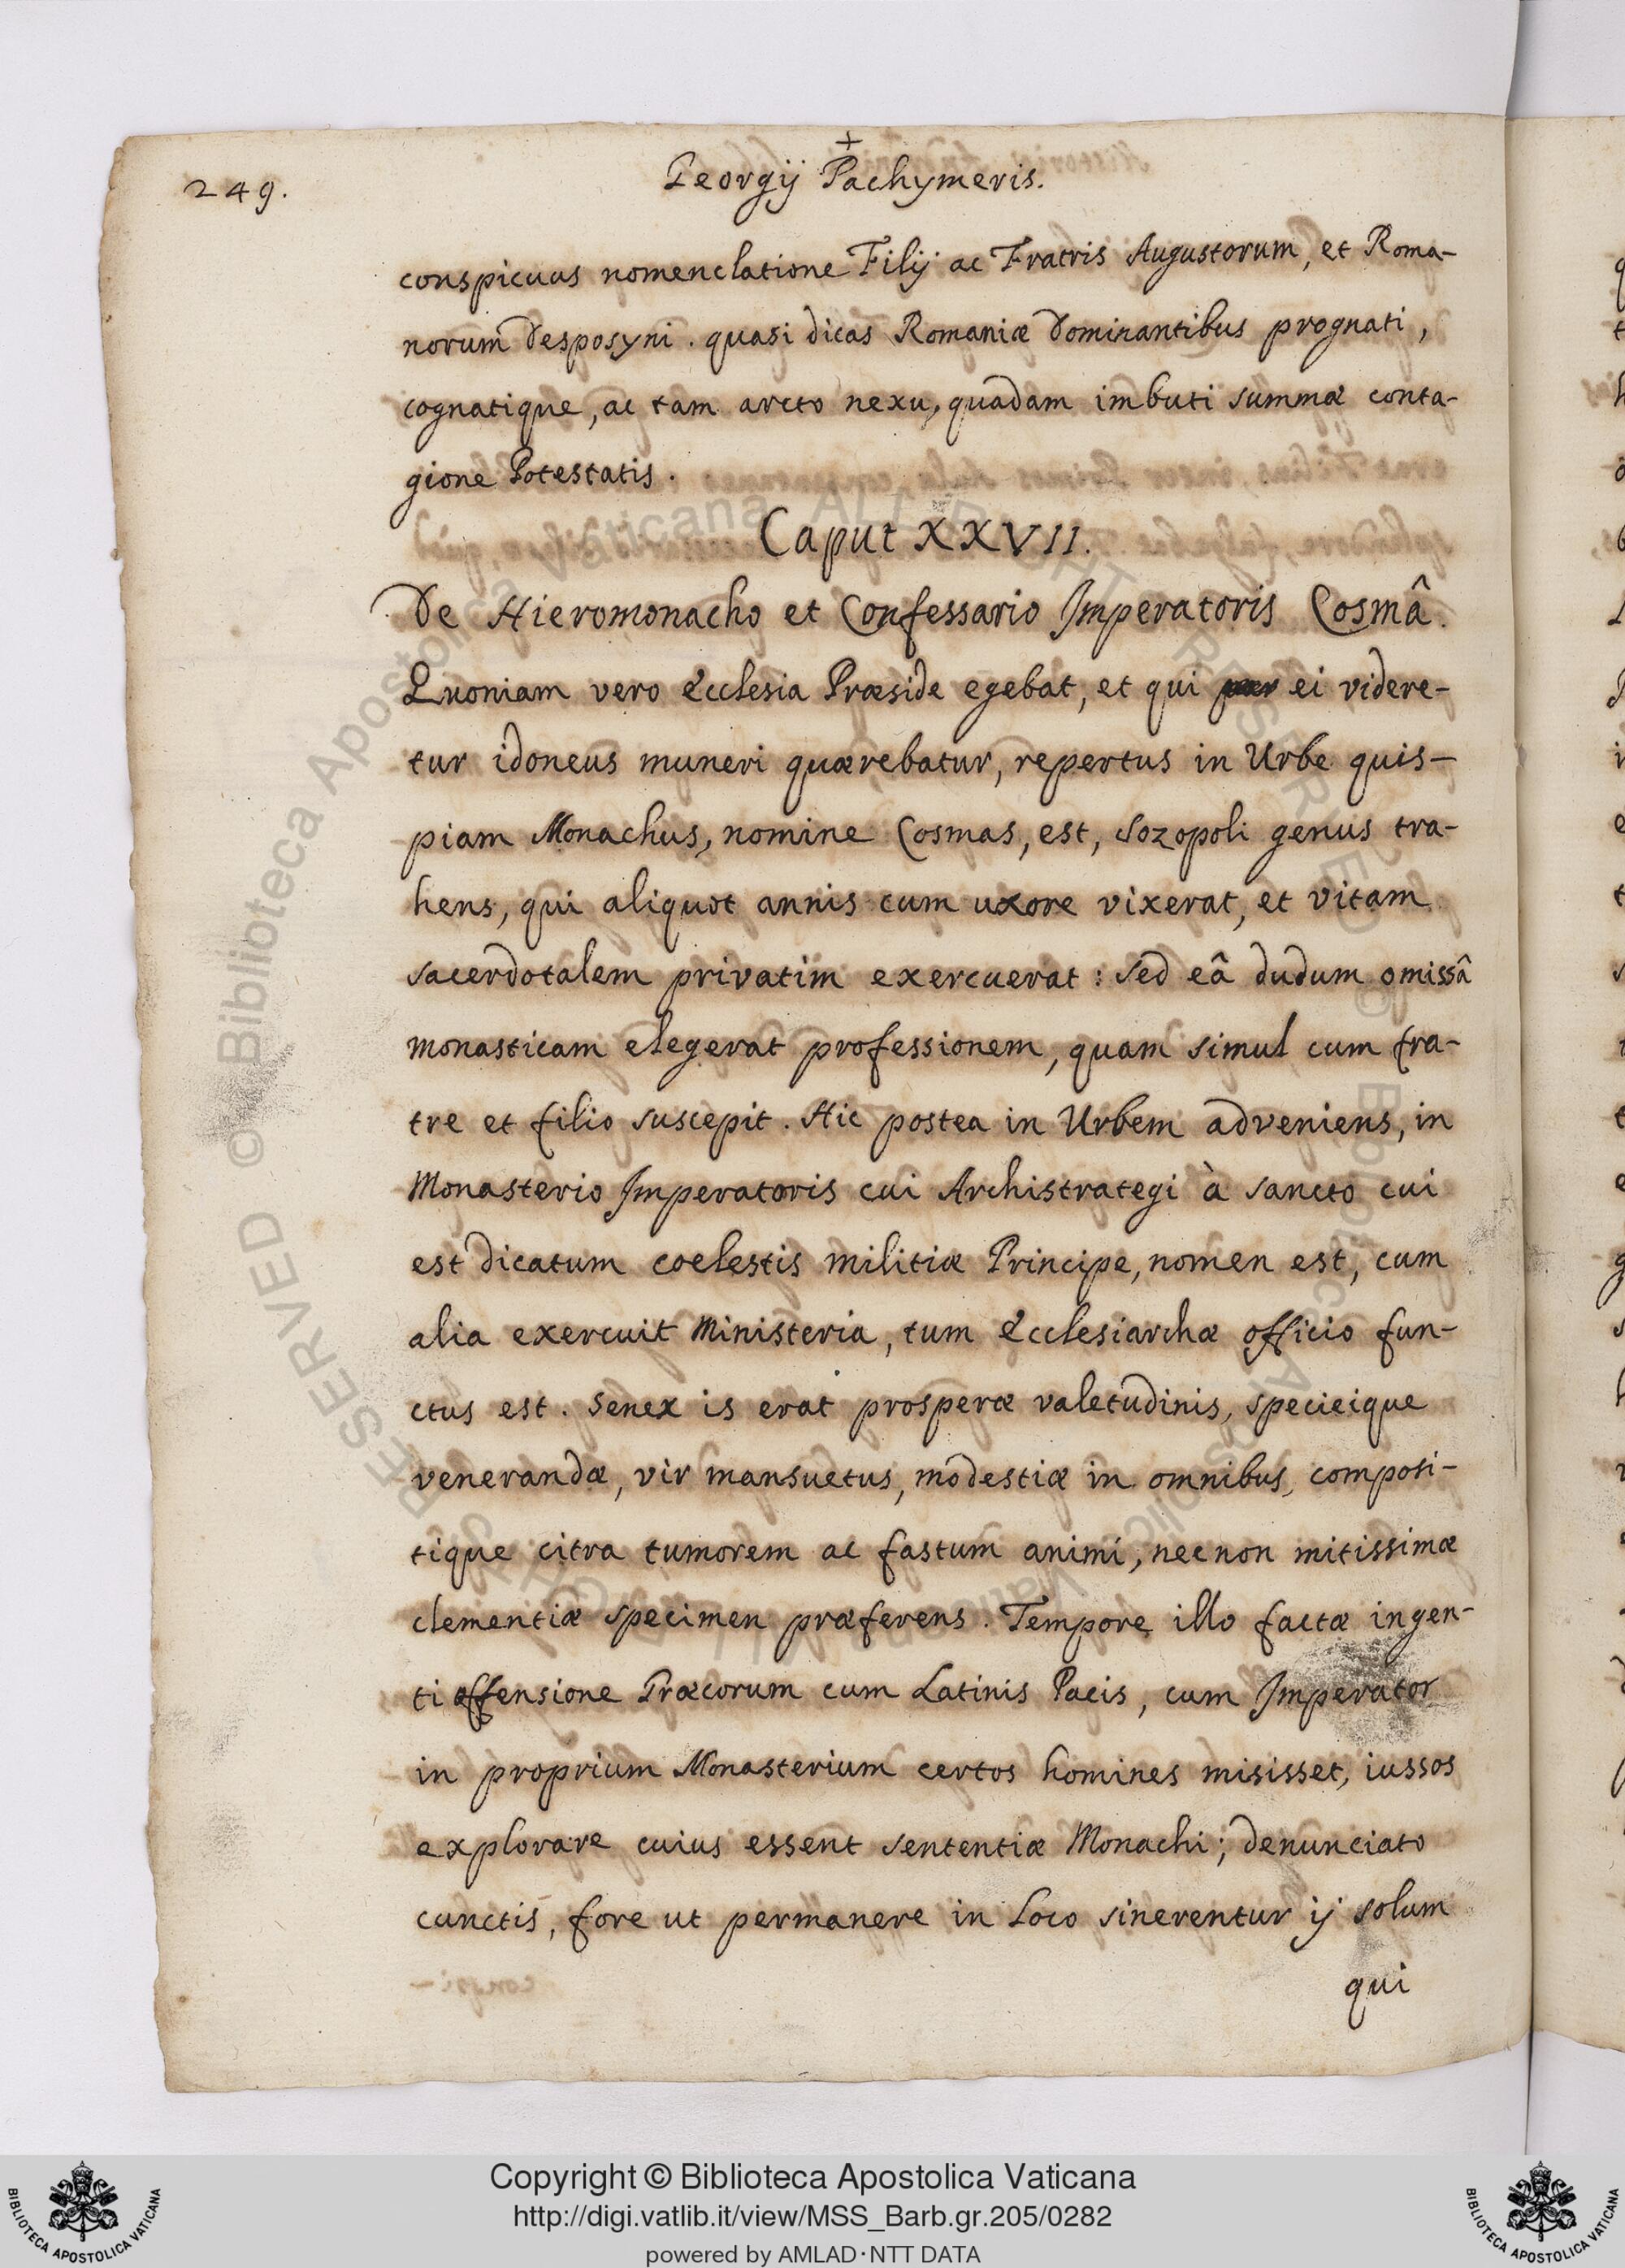 249.
+
Georgij Pachymeris.
conspicuus nomenclatione Filij ac Fratris Augustorum, et Roma-
norum Desposyni. quasi dicas Romaniæ Dominantibus prognati,
cognatique, ac tam arcto nexu, quadam imbuti summæ conta-
gione Potestatis.
Caput XXVII.
De Hieromonacho et Confessario Imperatoris Cosmâ.
Quoniam vero Ecclesia Præside egebat, et qui ei videre-
tur idoneus muneri quærebatur, repertus in Urbe quis-
piam Monachus, nomine Cosmas, est, Sozopoli genus tra-
hens, qui aliquot annis cum uxore vixerat, et vitam
sacerdotalem privatim exercuerat: sed eâ dudum omissâ
monasticam elegerat professionem, quam simul cum fra-
tre et filio suscepit. Hic postea in Urbem adveniens, in
Monasterio Imperatoris cui Archistrategi à sancto cui
est dicatum coelestis militiæ Principe, nomen est, cum
alia exercuit Ministeria, tum Ecclesiarchæ officio fun-
ctus est. Senex is erat prosperæ valetudinis, specieique
venerandæ, vir mansuetus, modestiæ in omnibus, compositi-
tique citra tumorem ac fastum animi, necnon mitissimæ
clementiæ specimen præferens. Tempore illo factæ ingen-
ti offensione Græcorum cum Latinis Pacis, cum Imperator
in proprium Monasterium certos homines misisset, iussos
explorare cuius essent sententiæ Monachi; denunciato
cunctis, fore ut permanere in Loco sinerentur ij solum
qui
© Biblioteca Apostolica Vaticana ALL RIGHT RESERVED © Biblioteca Apostolica Vaticana ALL RIGHT RESERVED
BIBLIOTECA APOSTOLICA VATICANA
Copyright © Biblioteca Apostolica Vaticana
http://digi.vatlib.it/view/MSS_Barb.gr.205/0282
powered by AMLAD·NTT DATA
BIBLIOTECA APOSTOLICA VATICANA